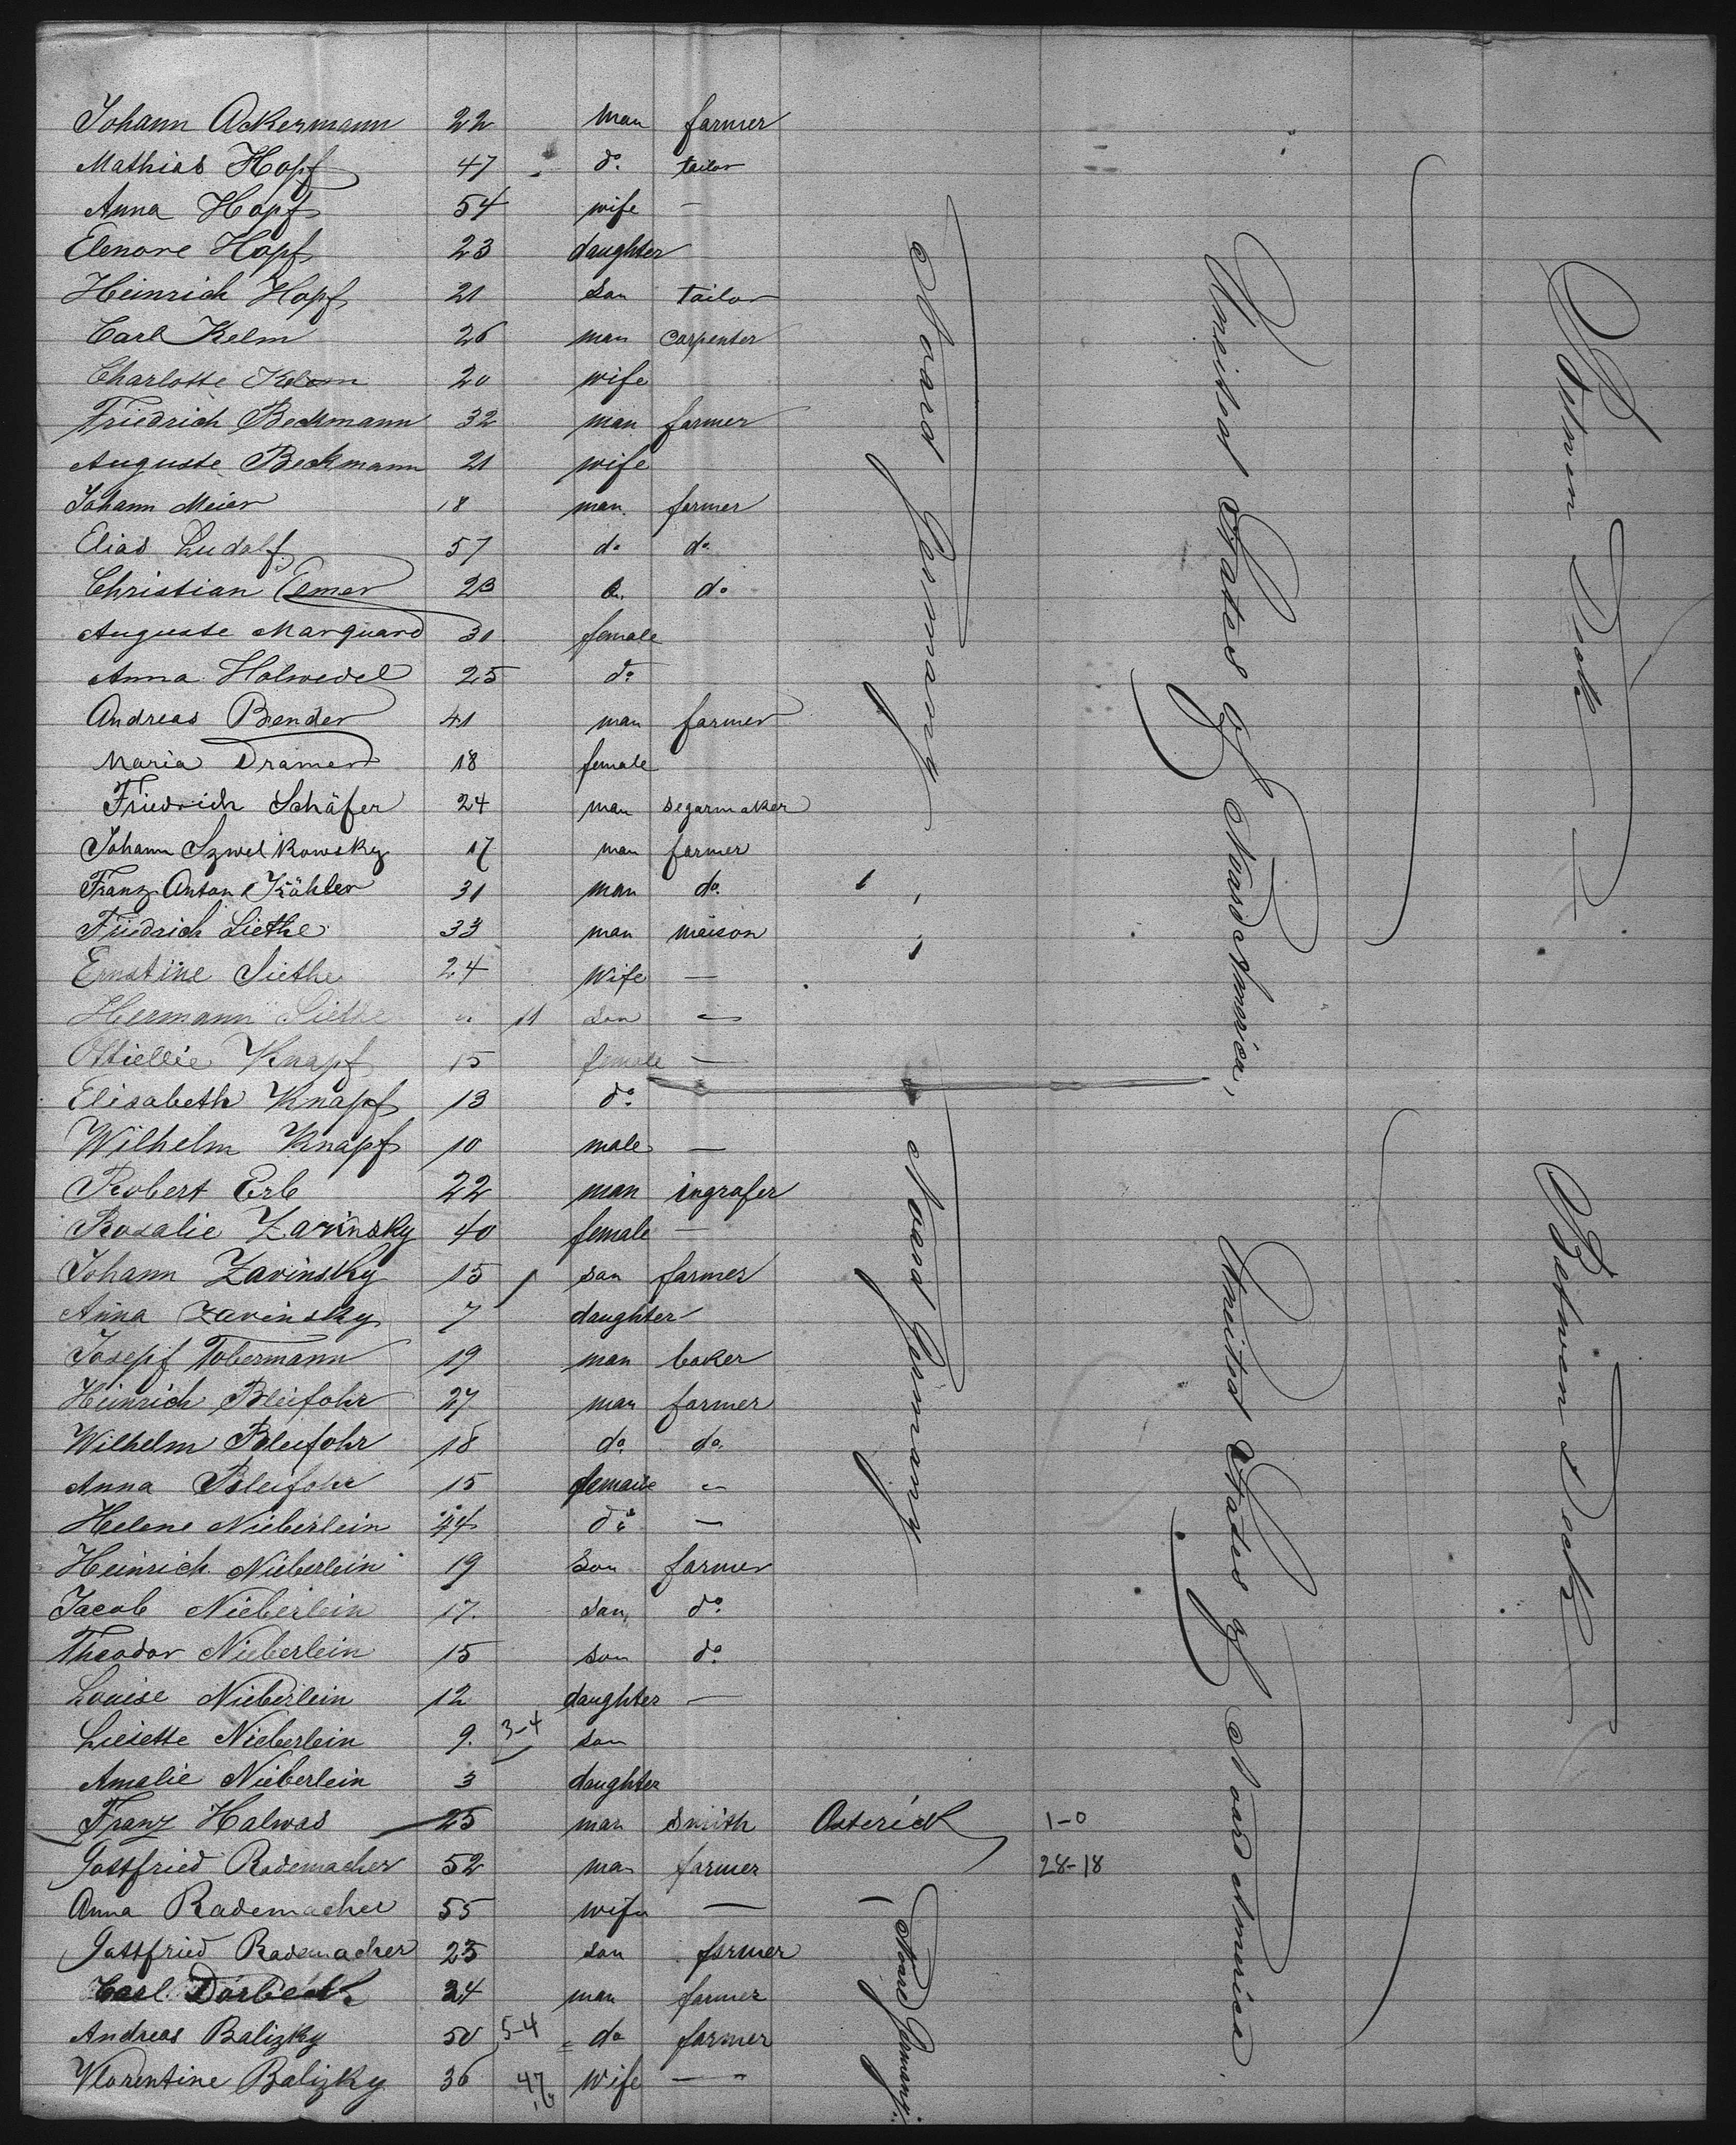 Johann Ackermann 22 man farmer
Mathias Hopf 47 do. tailor
Anna Hopf 54 wife —
Elenore Hopf 23 daughter
Heinrich Hopf 21 son tailor
Carl Kelm 26 man carpenter
Charlotte Kelm 20 wife
Friedrich Beckmann 32 man farmer
Auguste Beckmann 21 wife
Johann Meier 18 man farmer
Elias Ludolf 57 do do
Christian Eemer 23 do
Auguste Marquard 31 female
Anna Holwedel 25 do
Andreas Bender 41 man farmer
Maria Dramer 18 female
Friedrich Schäfer 24 man segarmaker
Johann Szwelkowsky 17 man farmer
Franz Anton Kähler 31 man do.
Friedrich Liethe 33 man meison
Ernstine Liethe 24 wife —
Hermann Liethe 11 son —
Ottiellie Knapf 15 female —
Elisabeth Knapf 13 do.
Wilhelm Knapf 10 male —
Robert Erb 22 man ingrafer
Rosalie Zavinsky 40 female —
Johann Zavinsky 15 son farmer
Anna Zavinsky 7 daughter
Josepf Tobermann 19 man baker
Heinrich Bleifohr 27 man farmer
Wilhelm Bleifohr 18 do. do.
Anna Bleifohr 15 female
Helene Nieberlein 44 do —
Heinrich Nieberlein 19 son farmer
Jacob Nieberlein 17. son, do.
Theodor Nieberlein 15 son do.
Louise Nieberlein 12 daughter —
Liesette Nieberlein 9. 3-4 son
Amalie Nieberlein 3 daughter
Franz Halwas 25 man smith Osterick 1-0
Gottfried Rademacher 52 man farmer 28-18
Anna Rademacher 55 wife —
Gottfried Rademacher 23 son farmer
Carl Dorbeck 34 man farmer
Andreas Balizky 50 5-4 do farmer
Vlorentine Balizky 36 47 wife —
Noard Germany
Noard Germany
Noard Germany.
Uneited States of Noard America,
Uneited States of Noard America
Between Deck
Between Deck